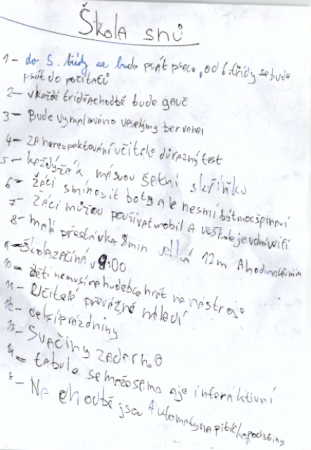 Škola snů
1 - do 5. třídy se bude psát perem, od 6 třídy se bude
psát do počítačů
2 - v každé třídě a chodbě bude gauč
3 - Bude vymalováno veselými barvami
4 - Za nerespektování učitele důrazný test
5 - každý žák, má svou šatní skříňku
6 - žáci smí nosit boty ale nesmí být moc špinaví
7 - žáci můžou používat mobil a ve škole je volná wifi
8 - malá přestávka 8min velká 12m
9 - Škola začíná v 9:00
10 - děti nemusí na hudebce hrát na nástroje
11 - Učitelé převážně mladí
12 - prázdniny
13 - Svačiny zadarmo
14 - tabule se maže sama a je interaktivní
- Na chodbě jsou Automaty na pití